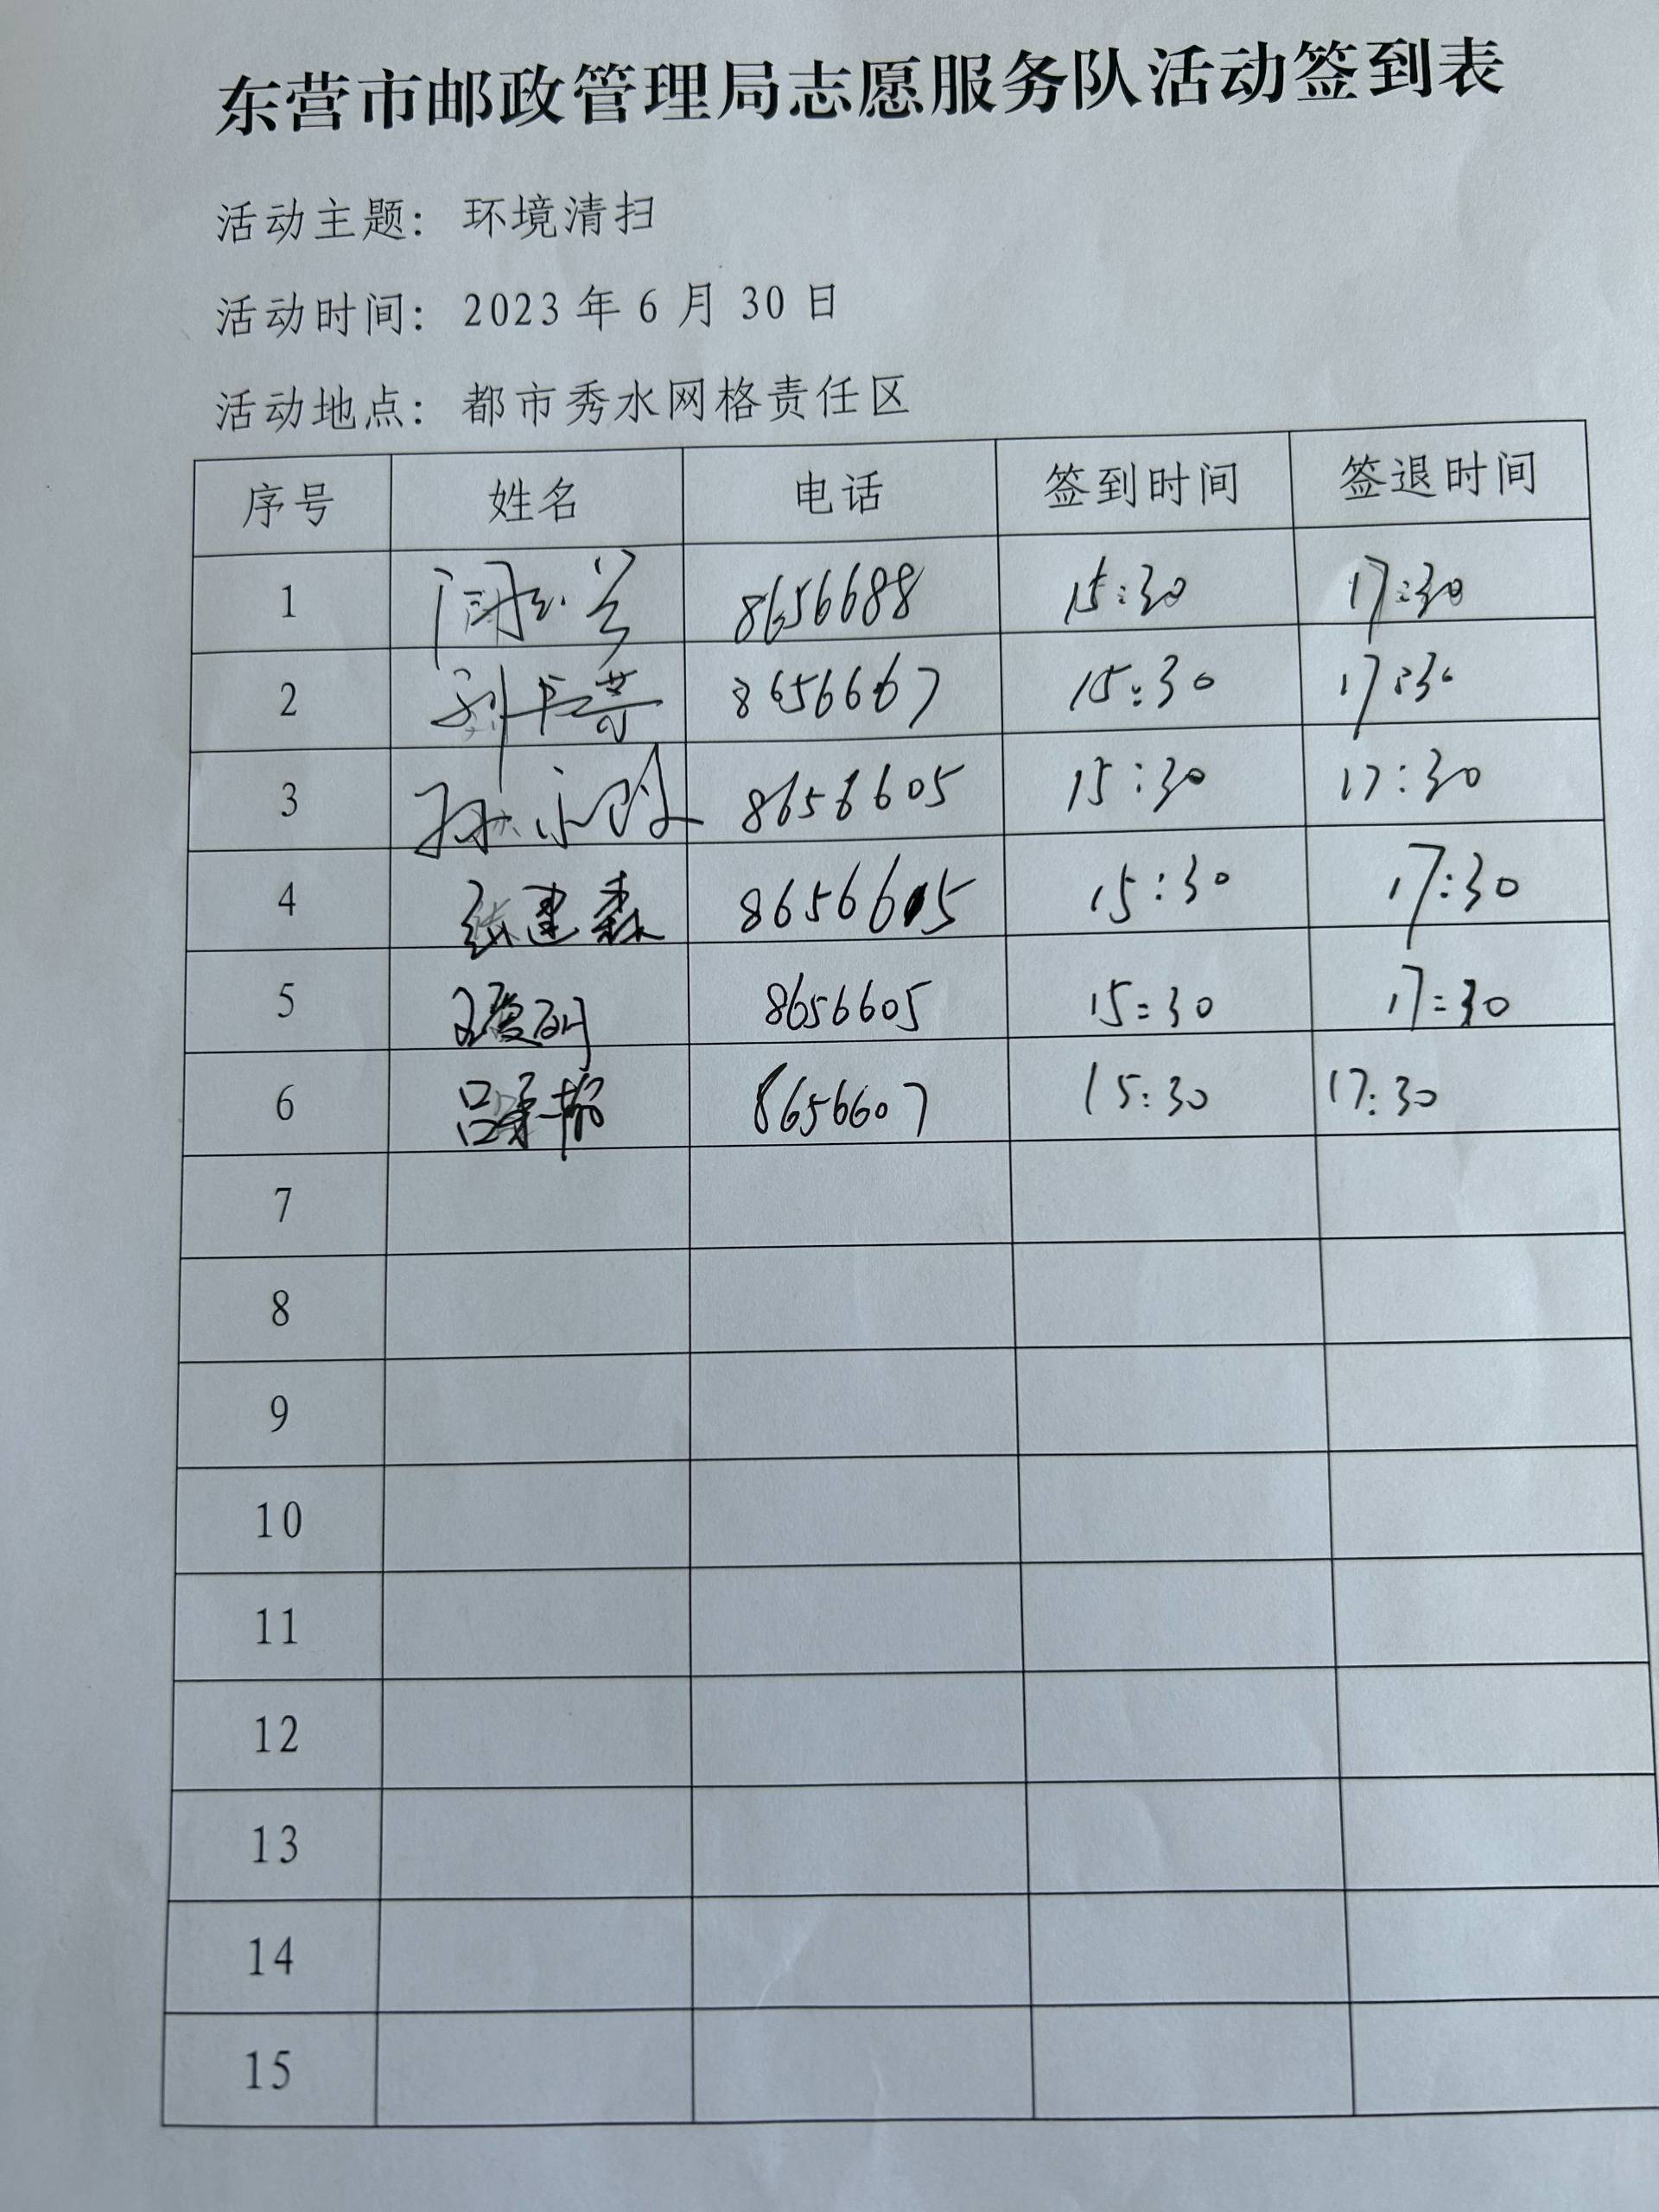 东营市邮政管理局志愿服务队活动签到表
活动主题：环境清扫
活动时间：2023年6月30日
活动地点：都市秀水网格责任区
序号 姓名 电话 签到时间 签退时间
1 8656688 15:30 17:30
2 8656667 15:30 17:30
3 8656605 15:30 17:30
4 张建森 15:30 17:30
5 8656605 15:30 17:30
6 8656607 15:30 17:30
7
8
9
10
11
12
13
14
15